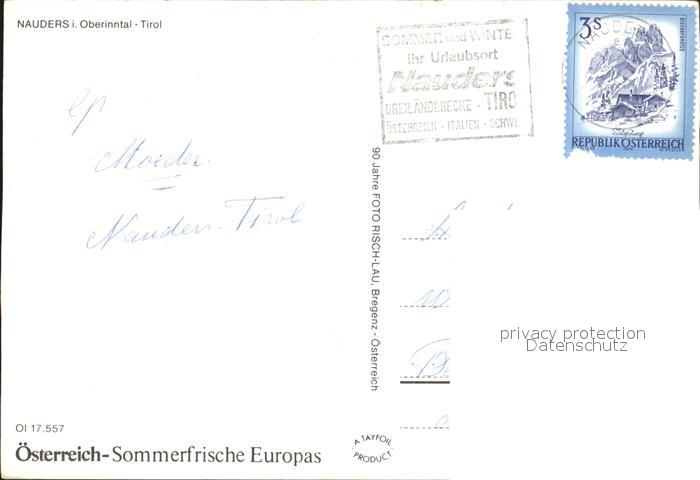 NAUDERS i. Oberinntal - Tirol
SOMMER und WINTE
Ihr Urlaubsort
Nauders
DREILÄNDERECKE - TIRO
ÖSTERREICH - ITALIEN - SCHWE
NAUDERS
3S
BISCHOFSMÜTZE
Salzburg
REPUBLIK ÖSTERREICH
Nauders. Tirol
90 Jahre FOTO RISCH-LAU, Bregenz - Österreich
privacy protection
Datenschutz
OI 17.557
Österreich-Sommerfrische Europas
A TAYFOIL
PRODUCT